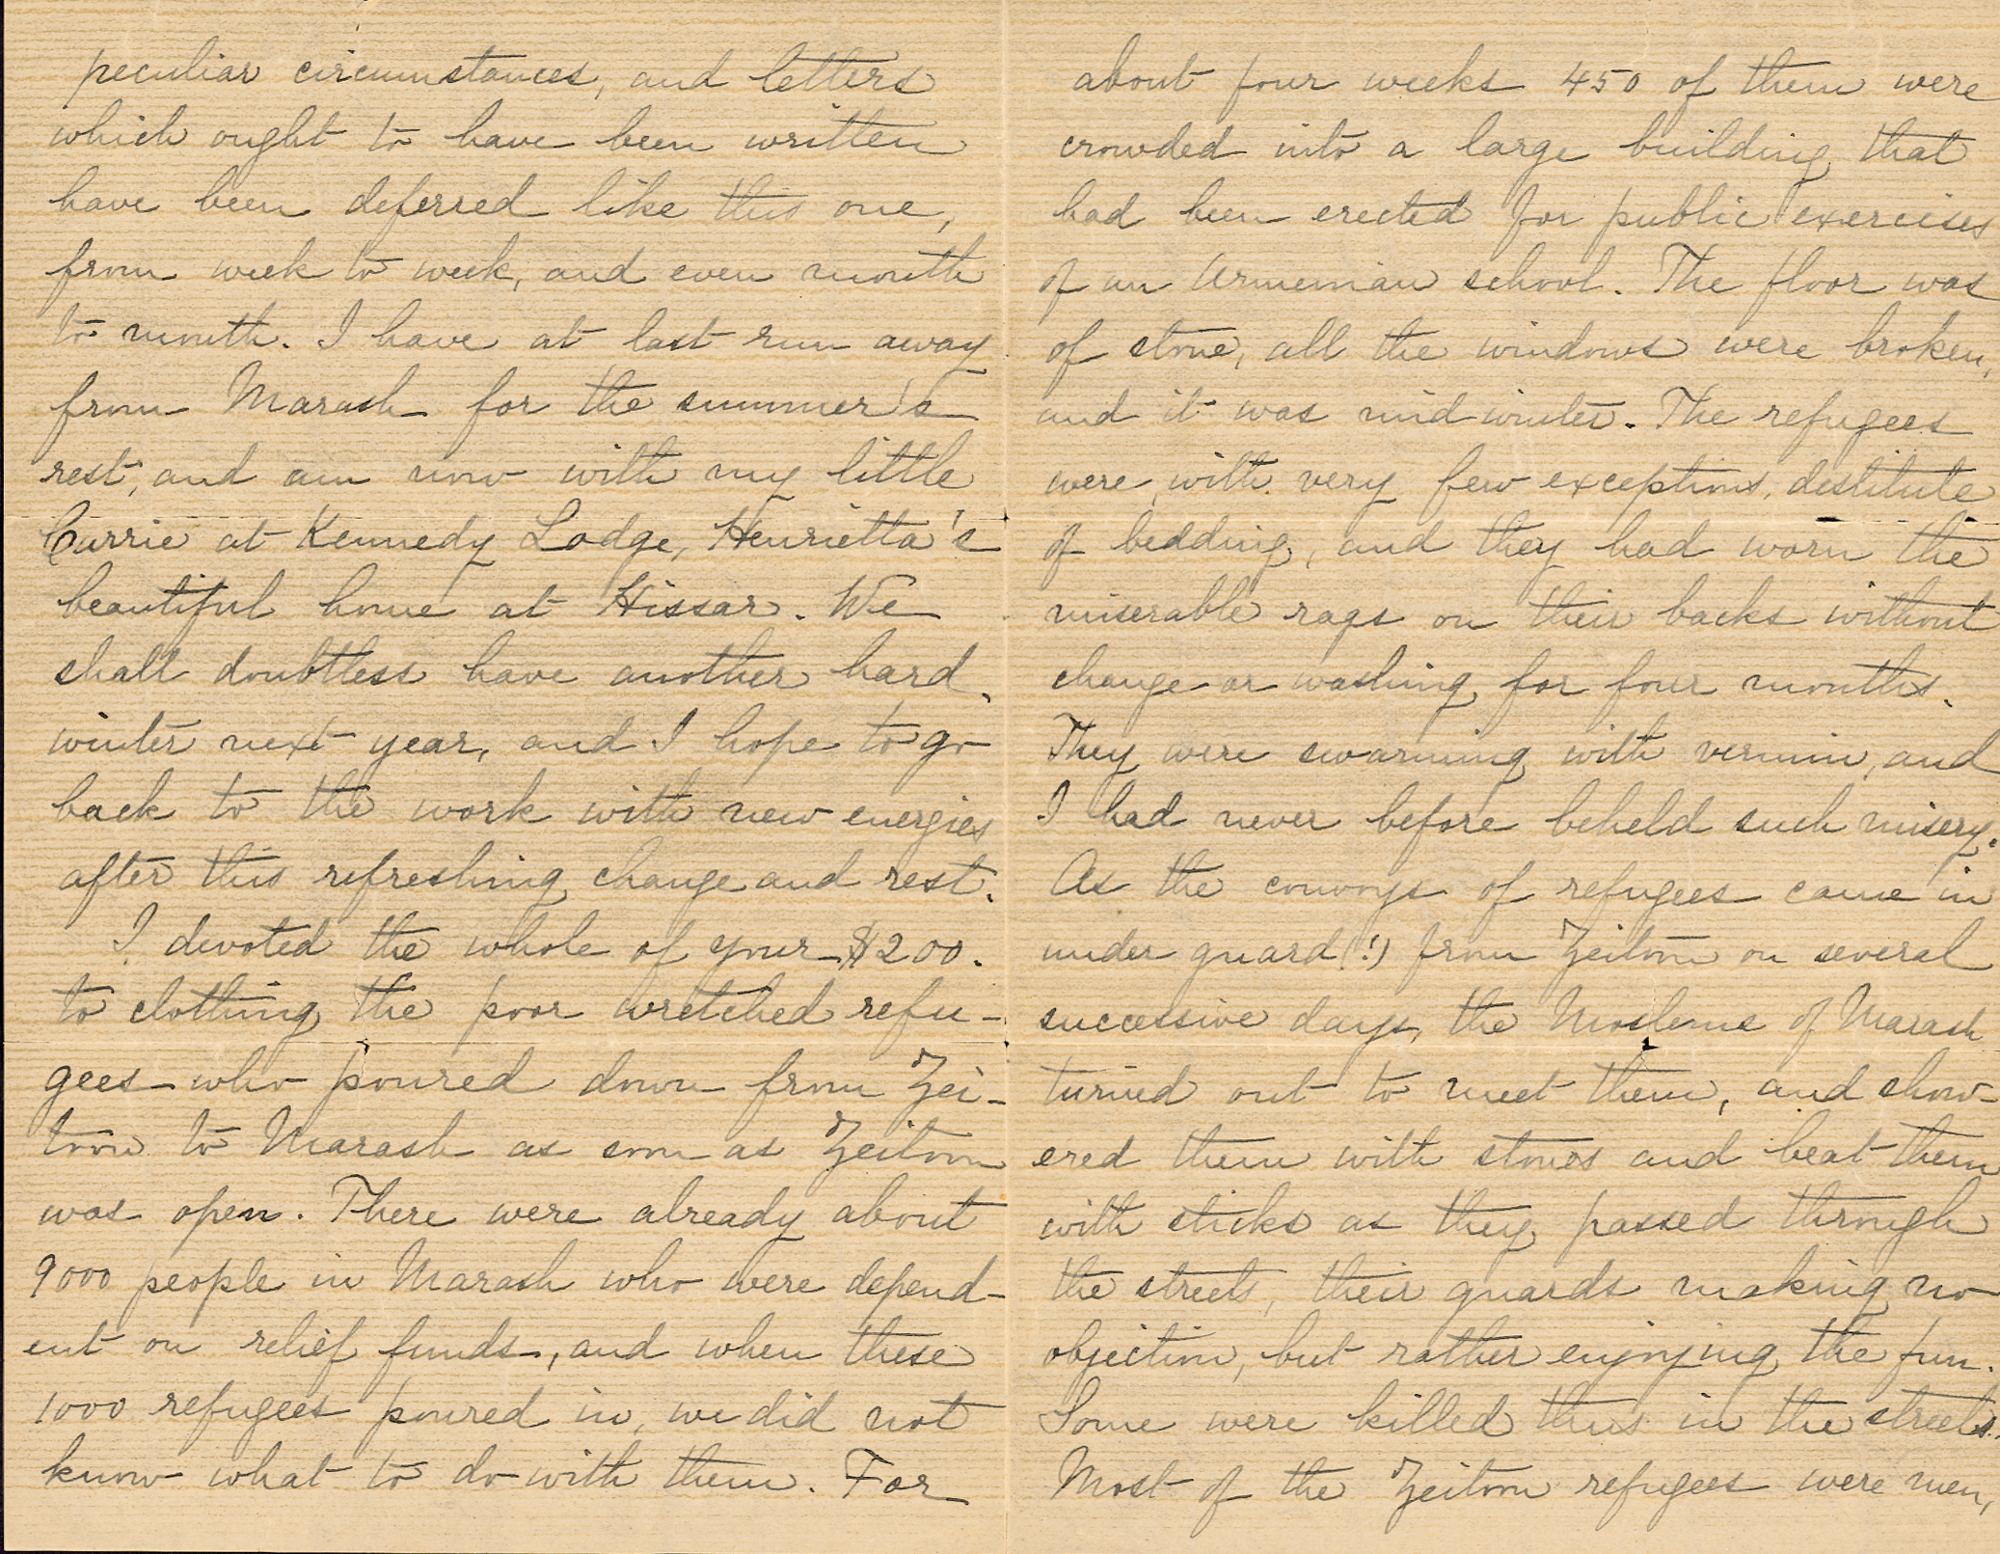 peculiar circumstances, and letters
which ought to have been written
have been deferred like this one,
from week to week, and even month
to month. I have at last run away
from Marash for the summer's
rest, and am now with my little
Carrie at Kennedy Lodge, Henrietta's
beautiful home at Hissar. We
shall doubtless have another hard
winter next year, and I hope to go
back to the work with new energies
after this refreshing change and rest.
I devoted the whole of your $200.
to clothing the poor wretched refu-
gees who poured down from Zei-
toon to Marash as soon as Zeitoon
was open. There were already about
9000 people in Marash who were depend-
ent on relief funds, and when these
1000 refugees poured in, we did not
know what to do with them. For
about four weeks 450 of them were
crowded into a large building that
had been erected for public exercises
of an Armenian school. The floor was
of stone, all the windows were broken,
and it was mid winter. The refugees
were, with very few exceptions, destitute
of bedding, and they had worn the
miserable rags on their backs without
change or washing for four months.
They were swarming with vermin, and
I had never before beheld such misery.
As the convoys of refugees came in
under guard (!) from Zeitoon on several
successive days, the Moslems of Marash
turned out to meet them, and show-
ered them with stones and beat them
with sticks as they passed through
the streets, their guards making no
objection, but rather enjoying the fun.
Some were killed thus in the streets.
Most of the Zeitoon refugees were men,